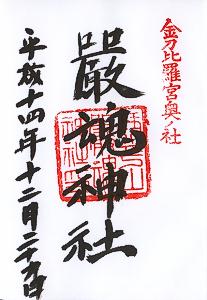 金刀比羅宮奥ノ社
嚴魂神社
平成十四年十二月二十九日